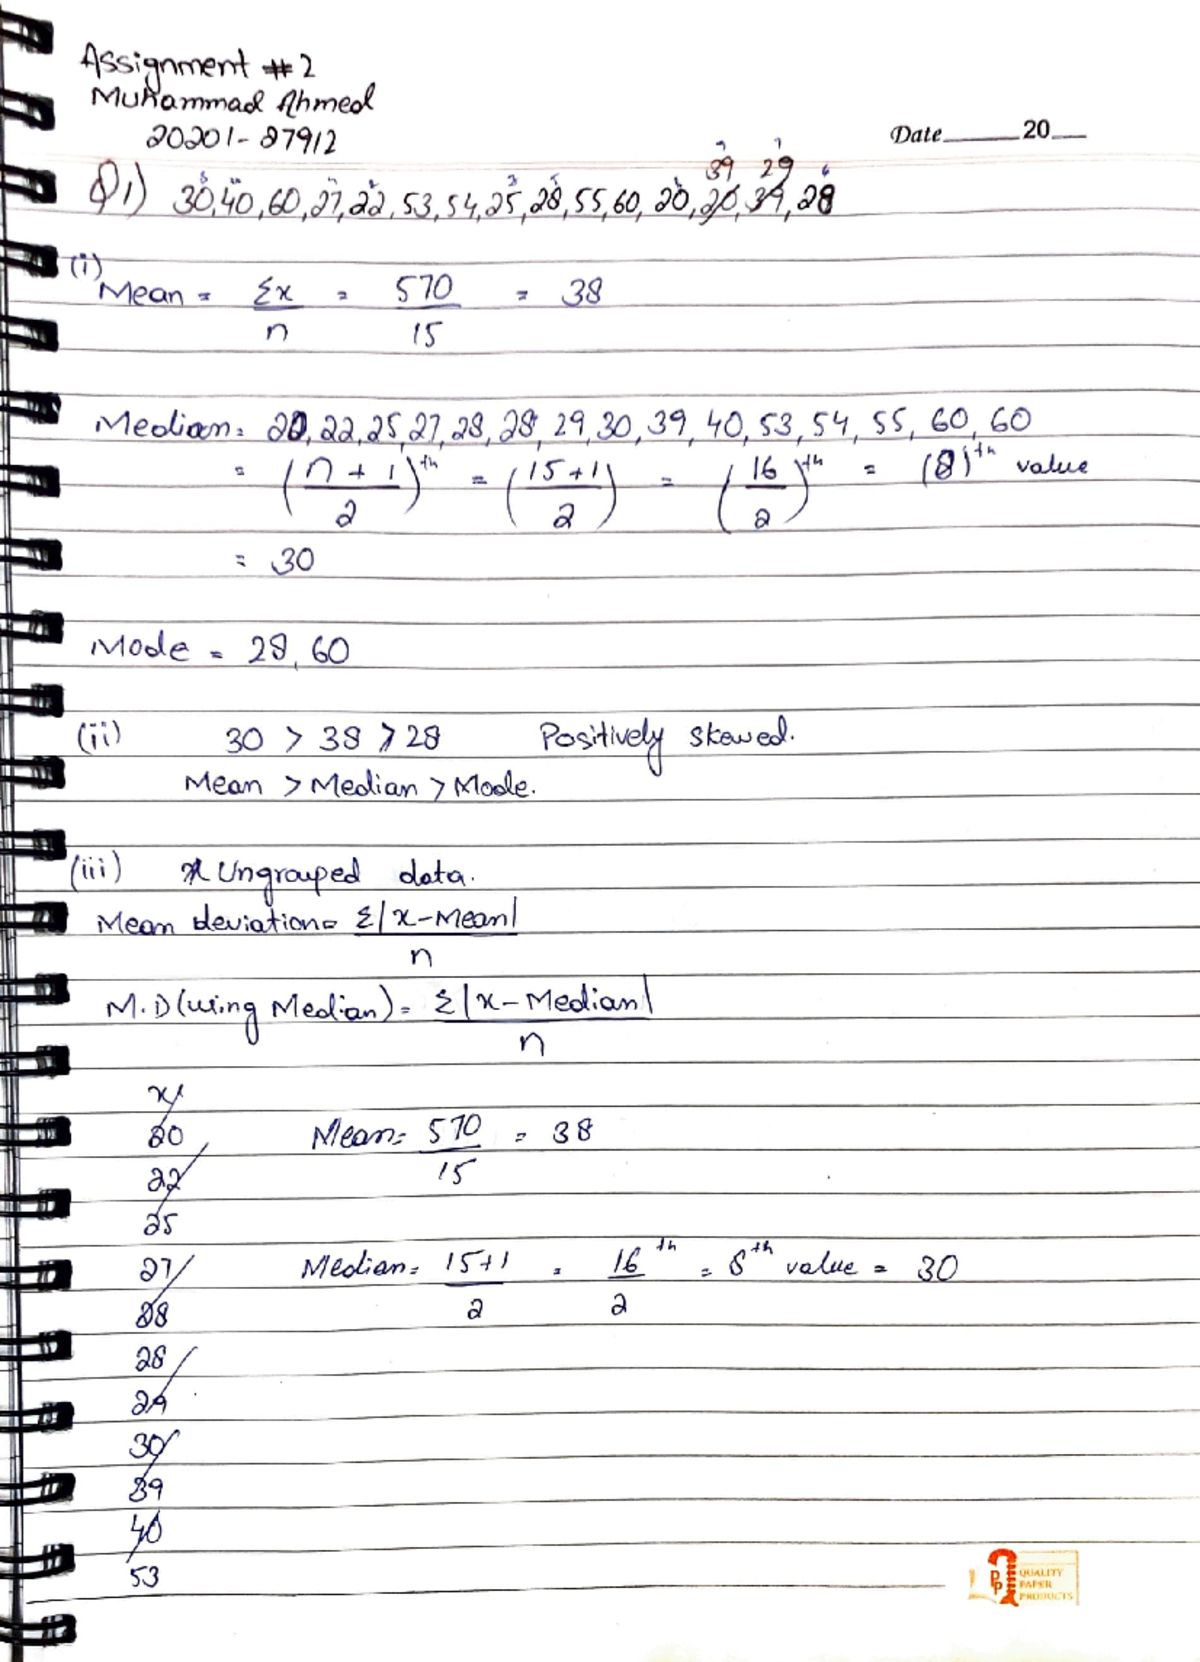 Assignment #2
Muhammad Ahmed
20201-27912
Date ______ 20 __
39 29
Q1) 30,40,60,27,22,53,54,25,28,55,60,20,20,39,28
(i)
Mean = Σx = 570 = 38
n 15
Median = 20,22,25,27,28,28,29,30,39,40,53,54,55,60,60
= (n+1/2)th = (15+1/2) = (16/2)th = (8)th value
= 30
Mode = 28, 60
(ii) 30 > 38 > 28 Positively skewed.
Mean > Median > Mode.
(iii) Ungrouped data.
Mean deviation = Σ|x-Mean|
n
M.D (using Median) = Σ|x-Median|
n
x
20 Mean = 570 = 38
22 15
25
27 Median = 15+1 = 16th = 8th value = 30
28 2 2
28
29
30
39
40
53
PP
QUALITY
PAPER
PRODUCTS